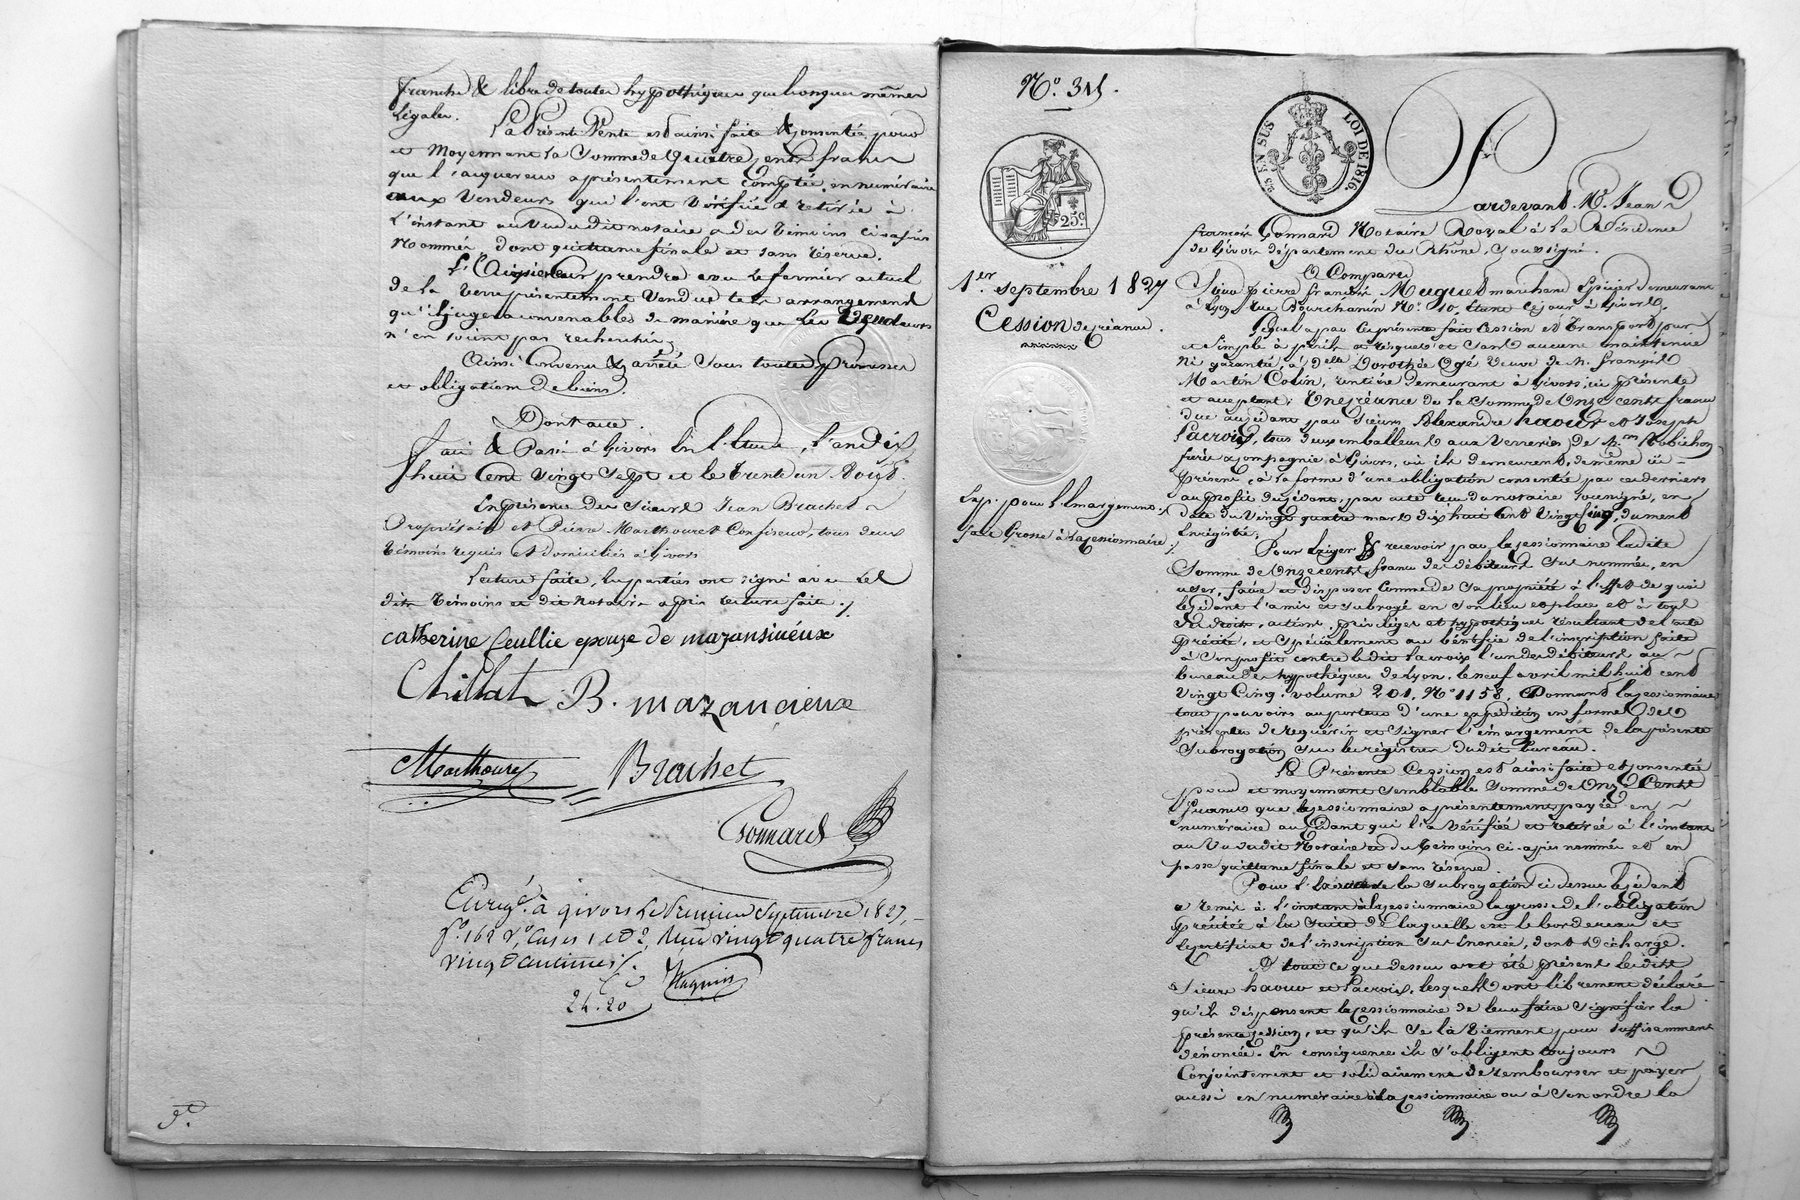 franche & libre de toutes hypothèques quelconques mêmes
légales.
La Présente Vente est ainsi faite & consentie, pour
et Moyennant la Somme de Quatre cents francs
que l'acquereur a présentement Comptée en numéraire
aux Vendeurs qui l'ont Vérifiée & retirée à
L'instant au Vu du dit notaire & des témoins ci après
Nommés, dont quittance finale et sans réserve.
L'acquereur prendra avec le fermier actuel
de la terre présentement Vendue tels arrangements
qu'il jugera convenables de manière que les Vendeurs
n'en soient pas recherchés.
Ainsi Convenu & arrêté Sous toutes Promesses
et obligations de biens.
Dont acte.
Fait & Passé à Givors En l'Etude, L'an dix
huit Cent Vingt Sept et le trente un Août.
En présence des Sieurs Jean Brachet
Propriétaire et Pierre Marthouret Confiseur, tous deux
témoins requis et domiciliés à Givors
Lecture faite, les parties ont signé avec les
dits témoins et dit notaire après lecture faite ./
catherine feullie epouze de mazansiueux
Chillat B. mazancieux
Marthouret Brachet
Connard
Enregé. à givors le Premier Septembre 1827,
fo. 169 Vo, Cases 1 et 2, Reçu vingt quatre francs
vingt Centimes ./.
24.20
No. 315.
EN SUS LOI DE 1816.
25c
Pardevant Me. Jean
françois Connard Notaire Royal à la Résidence
de Givors département du Rhône, Soussigné.
1er. septembre 1827
Cession de créance.
A Comparu
Sieur pierre françois Muguet marchand Epicier demeurant
à Lyon, rue Bourchanin No. 10, étant ce jour à Givors,
Lequel a par ces présentes fait Cession et Transport pur
et simple à périls et risques et Sans aucune maintenue
Ni garantie, à Delle Dorothée Ogé Veuve de Sr. françois
Martin Colin, rentière demeurant à Givors, ici présente
et acceptant; Une créance de la Somme de Onze cents francs
due au cédant par Sieurs Alexandre haour et Joseph
Lacroix, tous deux emballeurs aux Verreries de Mrs Robichon
frères & compagnie à Givors, où ils demeurent, de même ici
présents, à la forme d'une obligation consentie par ces derniers
au profit du cédant, par acte reçu du notaire soussigné, en
date du Vingt quatre mars dix huit cent Vingt Cinq, dument
Enregistré;
Exp. pour l'Emargement.
faite Grosse à la cessionnaire
Pour Exiger & recevoir par la cessionnaire la dite
Somme de Onze cents francs des débiteurs Sus nommés, en
user, faire et disposer Comme de Sa propriété à l'effet de quoi
le cédant l'a mis et subrogé en Son lieu et place et à tous
Ses droits, actions, privilèges et hypothèques résultant de l'acte
Précité, et Spécialement au bénéfice de l'inscription faite
à Son profit contre le dit Lacroix l'un des débiteurs au
bureau des hypothèques de Lyon, le neuf avril mil huit cent
Vingt Cinq, volume 201, No. 1158, Donnant la cessionnaire
tous pouvoirs au porteur d'une expédition en forme des
présentes de requérir et Signer l'émargement de la présente
Subrogation Sur les régistres du dit Bureau.
La Présente Cession est ainsi faite et consentie
pour et moyennant semblable Somme de Onze Cents
Francs que la cessionnaire a présentement payée en
numéraire au Cédant qui l'a Vérifiée et retirée à l'instant
au Vu du dit Notaire et des témoins ci-après nommés et en
passe quittance finale et sans réserve.
Pour l' de la Subrogation ci dessus le cédant
a remis à l'instant à la cessionnaire la grosse de l'obligation
précitée à la Suite de laquelle est le bordereau et
le certificat de l'inscription Sus énoncée, dont décharge.
A tout ce que dessus ont été présents les dits
Sieurs haour et Lacroix, lesquels ont librement déclaré
qu'ils dispensent la cessionnaire de leur faire Signifier la
présente cession, et qu'ils Se la tiennent pour Suffisamment
dénoncée. En conséquence ils s'obligent toujours
Conjointement et solidairement de rembourser et payer
aussi en numéraire à la cessionnaire ou à Son ordre la